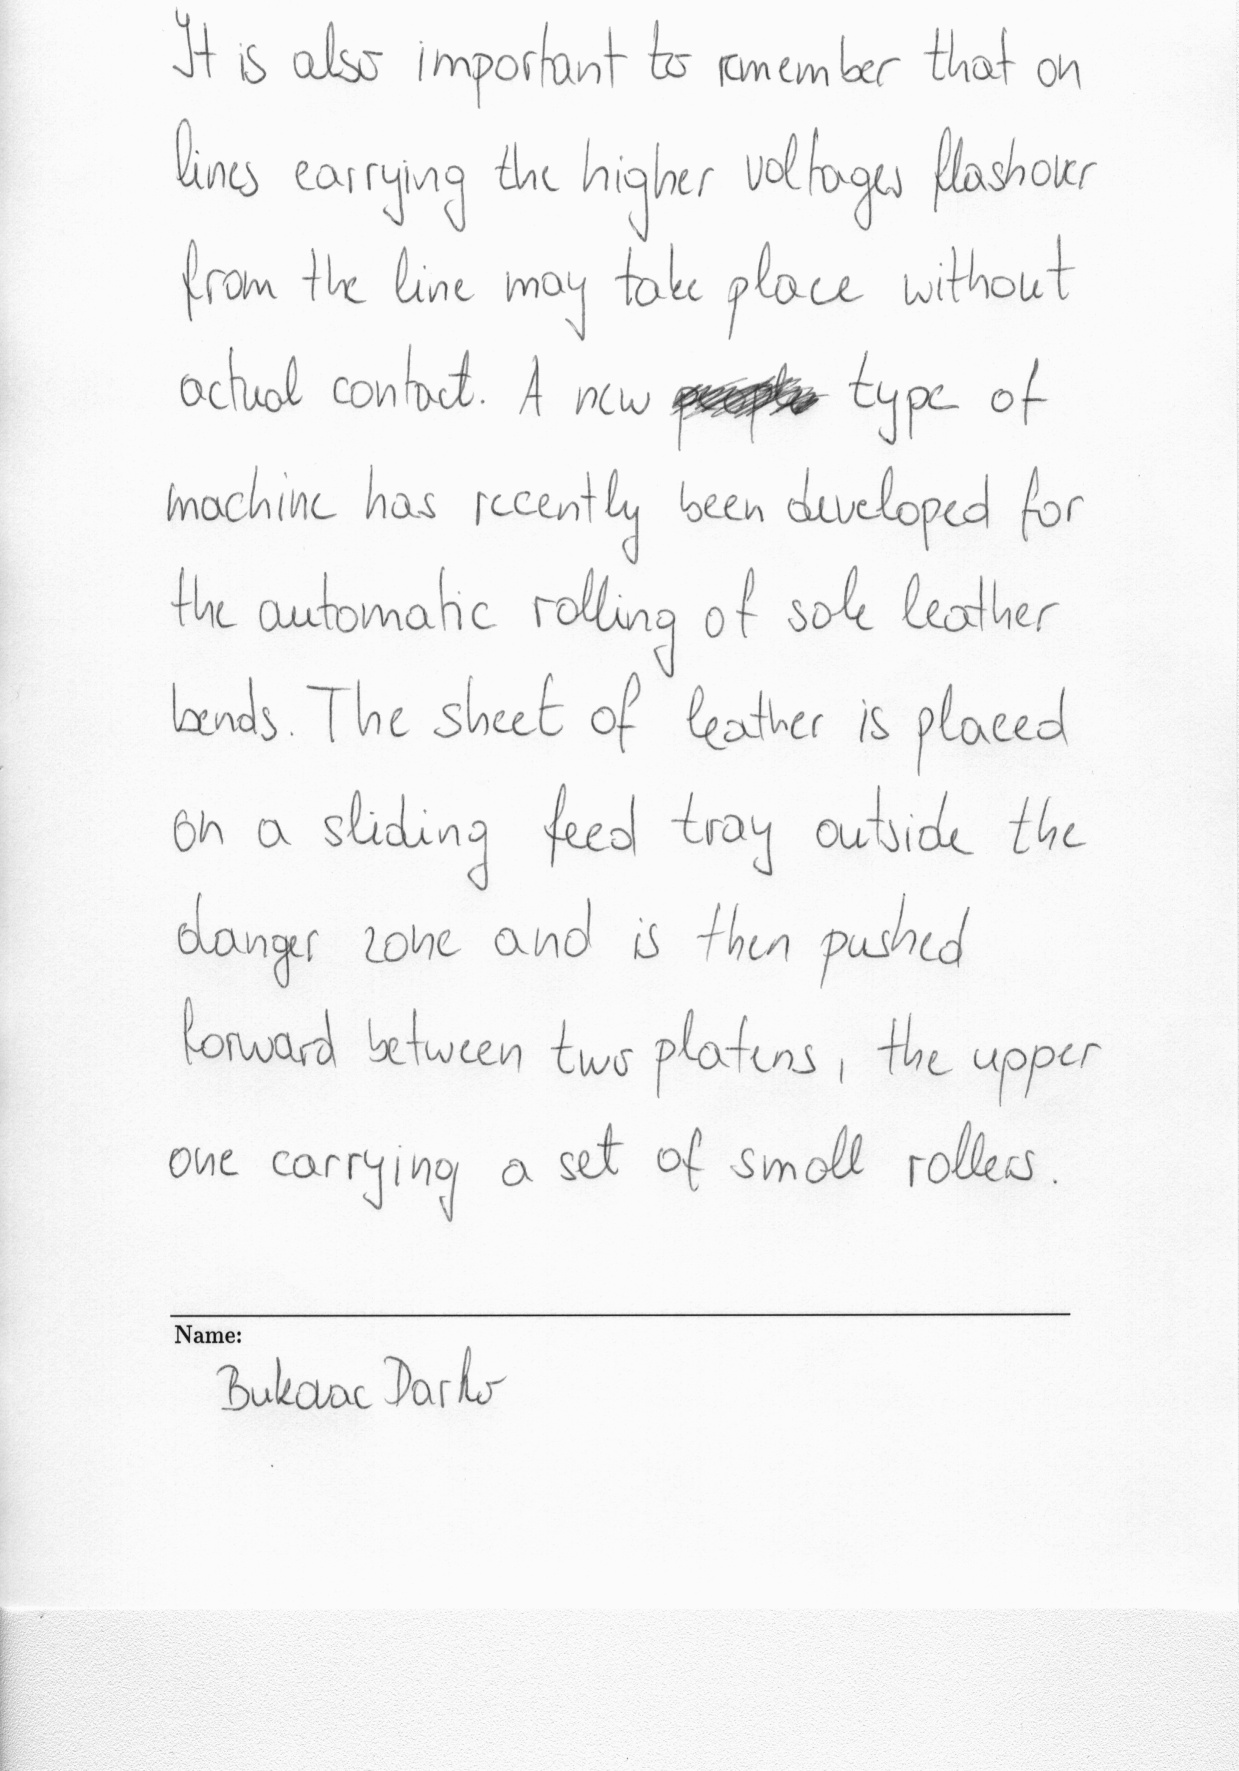 It is also important to remember that on
lines carrying the higher voltages flashover
from the line may take place without
actual contact. A new type of
machine has recently been developed for
the automatic rolling of sole leather
bends. The sheet of leather is placed
on a sliding feed tray outside the
danger zone and is then pushed
forward between two platens, the upper
one carrying a set of small rollers.
Name:
Bukovac Darko